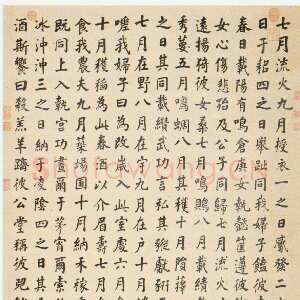 七月流火九月授衣一之日觱發二
日于耜四之日舉趾同我婦子饁彼
春日載陽有鳴倉庚女執懿筐遵彼
女心傷悲殆及公子同歸七月流火
遠揚猗彼女桑七月鳴鵙八月載績
秀葽五月鳴蜩八月其穫十月隕蘀
之日其同載纘武功言私其豵獻豣
七月在野八月在宇九月在戶十月
嗟我婦子曰為改歲入此室處六月
十月穫稻為此春酒以介眉壽七月
食我農夫九月築場圃十月納禾稼
既同上入執宮功晝爾于茅宵爾索
冰沖沖三之日納于凌陰四之日其
酒斯饗曰殺羔羊躋彼公堂稱彼兕